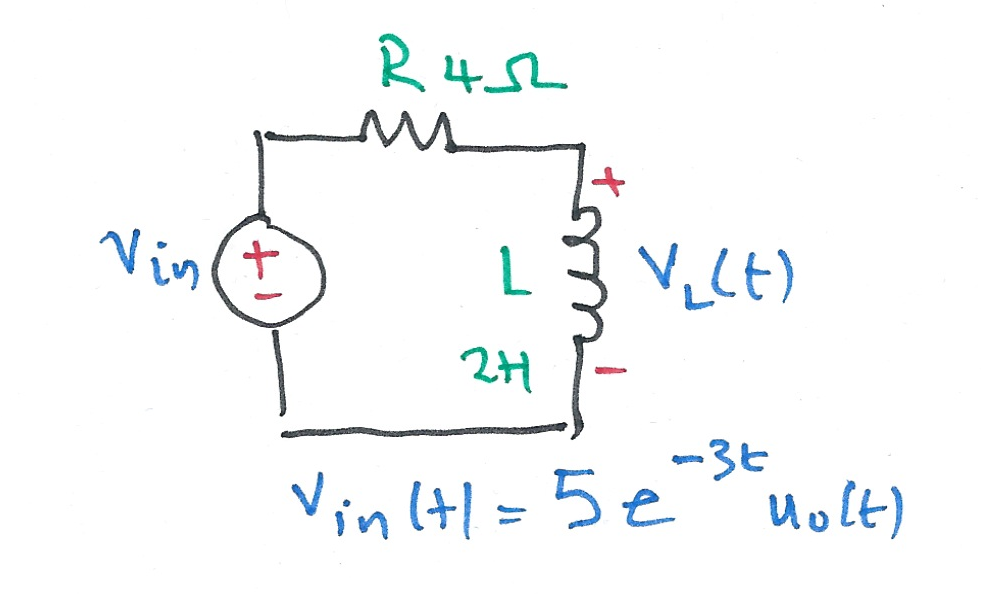 R 4Ω
+
Vin
+
-
L
VL(t)
2H
-
Vin(t) = 5e^-3t u0(t)